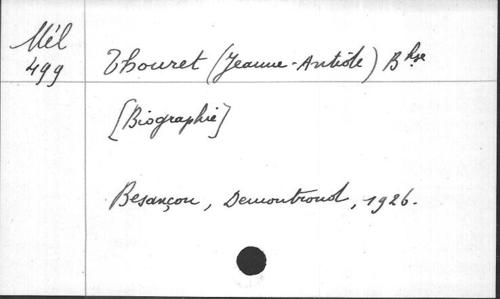 Mél
499
Thouret (Jeanne-Antide) Bhse
[Biographie]
Besançon, Demontrond, 1926.